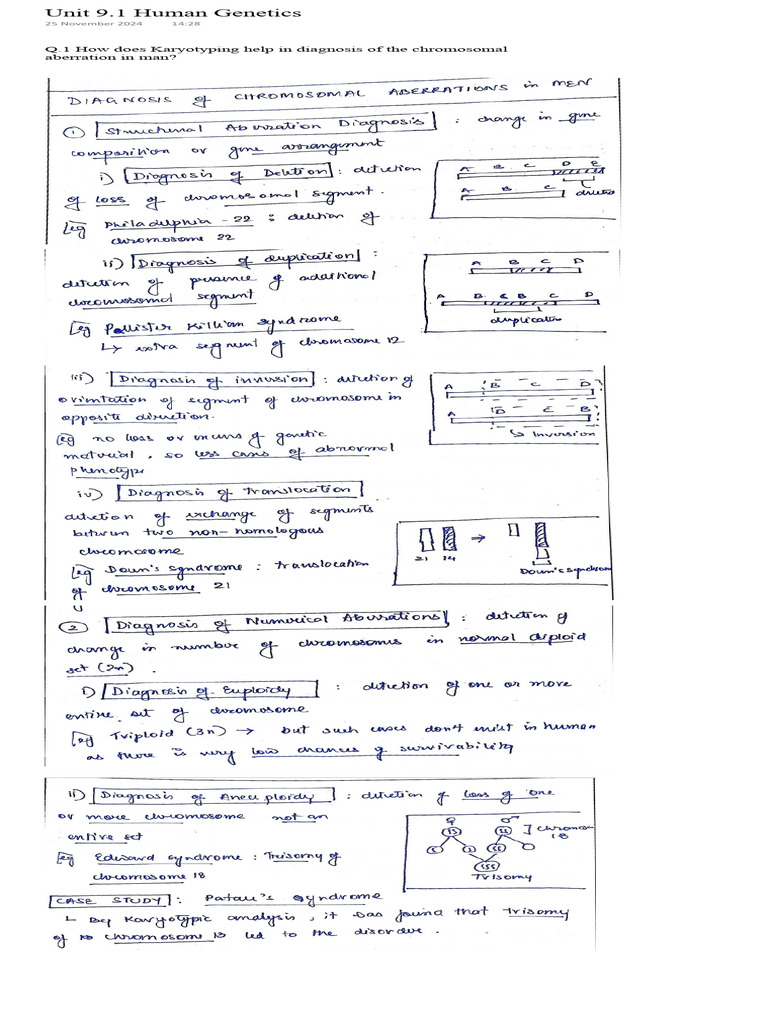 Unit 9.1 Human Genetics
25 November 2024 14:28
Q.1 How does Karyotyping help in diagnosis of the chromosomal
aberration in man?
DIAGNOSIS of CHROMOSOMAL ABERRATIONS in MEN
① Structural Aberration Diagnosis : change in gene
composition or gene arrangement
i) Diagnosis of Deletion : detection
of loss of chromosomal segment.
A B C D E
A B C deletion
eg Philadelphia - 22 : deletion of
chromosome 22
ii) Diagnosis of duplication :
detection of presence of additional
chromosomal segment
A B C D
A B C B C D
duplication
eg Pallister Killian syndrome
↳ extra segment of chromosome 12
iii) Diagnosis of inversion : detection of
orientation of segment of chromosome in
opposite direction.
A B C D
A D C B
↳ Inversion
eg no loss or excess of genetic
material, so less cases of abnormal
phenotype
iv) Diagnosis of translocation
detection of exchange of segments
between two non-homologous
chromosome
21 14 →
Down's syndrome
eg Down's syndrome : translocation
of chromosome 21
② Diagnosis of Numerical Aberrations : detection of
change in number of chromosomes in normal diploid
set (2n) .
i) Diagnosis of Euploidy : detection of one or more
entire set of chromosome
eg Triploid (3n) → but such cases don't exist in human
as there is very low chances of survivability
ii) Diagnosis of Aneuploidy : detection of loss of one
or more chromosome not an
entire set
♀ ♂
Chromo
18
Trisomy
eg Edward syndrome : Trisomy of
chromosome 18
CASE STUDY : Patau's syndrome
↳ By Karyotypic analysis, it was found that trisomy
of chromosome 13 led to the disorder.